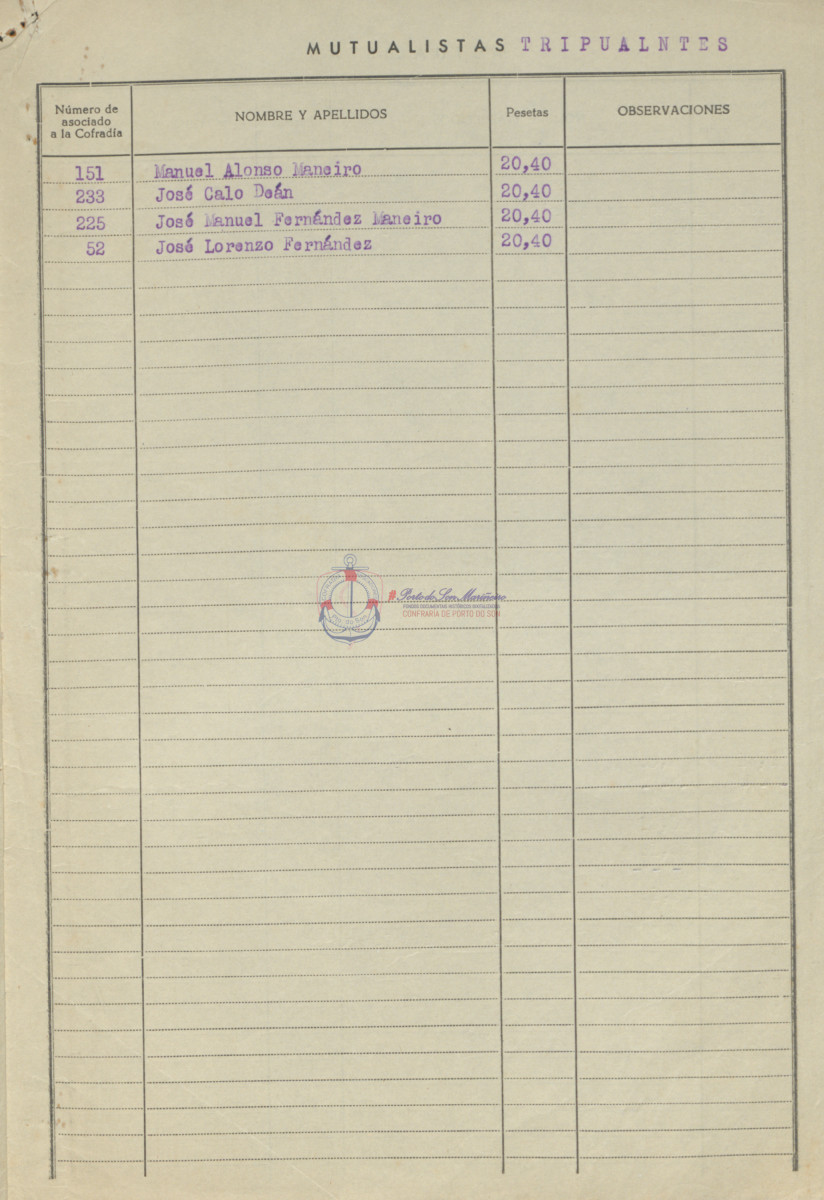 MUTUALISTAS TRIPUALNTES
Número de asociado a la Cofradía NOMBRE Y APELLIDOS Pesetas OBSERVACIONES
151 Manuel Alonso Maneiro 20,40
233 José Calo Deán 20,40
225 José Manuel Fernández Maneiro 20,40
52 José Lorenzo Fernández 20,40
Porto do Son Mariñeiro
FONDO DOCUMENTAL HISTÓRICO DIXITALIZADO
CONFRARIA DE PORTO DO SON